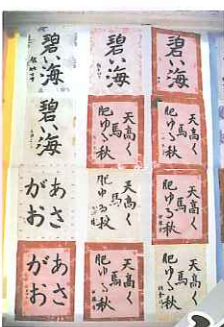 碧い
海
碧い
海
碧い
海
碧い
海
天高く
馬
肥ゆる秋
天高く
馬
肥ゆる秋
あさ
がお
天高く
馬
肥ゆる秋
天高く
馬
肥ゆる秋
あさ
がお
天高く
馬
肥ゆる秋
天高く
馬
肥ゆる秋